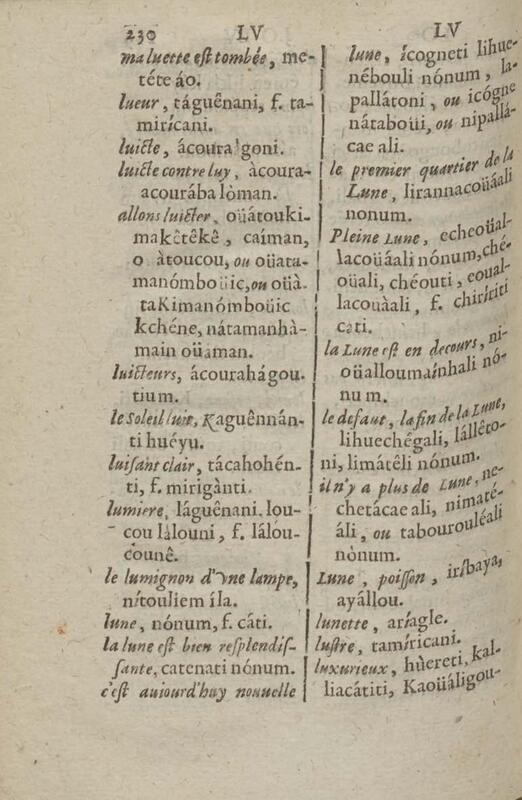 230 LV
ma luette est tombée, me-
téte áo.
lueur, táguênani, f. ta-
miricani.
luicte, ácoura goni.
luicte contre luy, àcoura-
acourába lòman.
allons luicter, oüátouki-
makêtêkê, caíman,
o àtoucou, ou oüata-
manómboüic, ou oüà-
taKimanómboüic
kchéne, nátamanhà-
main oüaman.
luicteurs, ácourahágou-
tium.
le Soleil luit, Kaguênnán-
ti huéyu.
luisant clair, tácahohén-
ti, f. mirigànti.
lumiere, láguênani. lou-
cou lálouni, f. lálou-
counê.
le lumignon d'vne lampe,
nítouliem íla.
lune, nónum, f. cáti.
la lune est bien resplendis-
sante, catenati nónum.
c'est auiourd'huy nouuelle
LV
lune, ícogneti lihue-
nébouli nónum, la-
pallátoni, ou icógne
nátaboüi, ou nipallá-
cae ali.
le premier quartier de la
Lune, lirannacoüáali
nonum.
Pleine Lune, echeoüal-
lacoüáali nónum, ché-
oüali, chéouti, eoual-
lacouàali, f. chirítiti
cati.
la Lune est en decours, ni-
oüalloumaínhali nó-
num.
le defaut, la fin de la Lune,
lihuechégali, lállêto-
ni, limátêli nónum.
il n'y a plus de Lune, ne-
chetácae ali, nimaté-
áli, ou tabourouléali
nònum.
Lune, poisson, iríbaya,
ayállou.
lunette, aríagle.
lustre, tamíricani.
luxurieux, hùereti, kal-
liacátiti, Kaoüáligou-